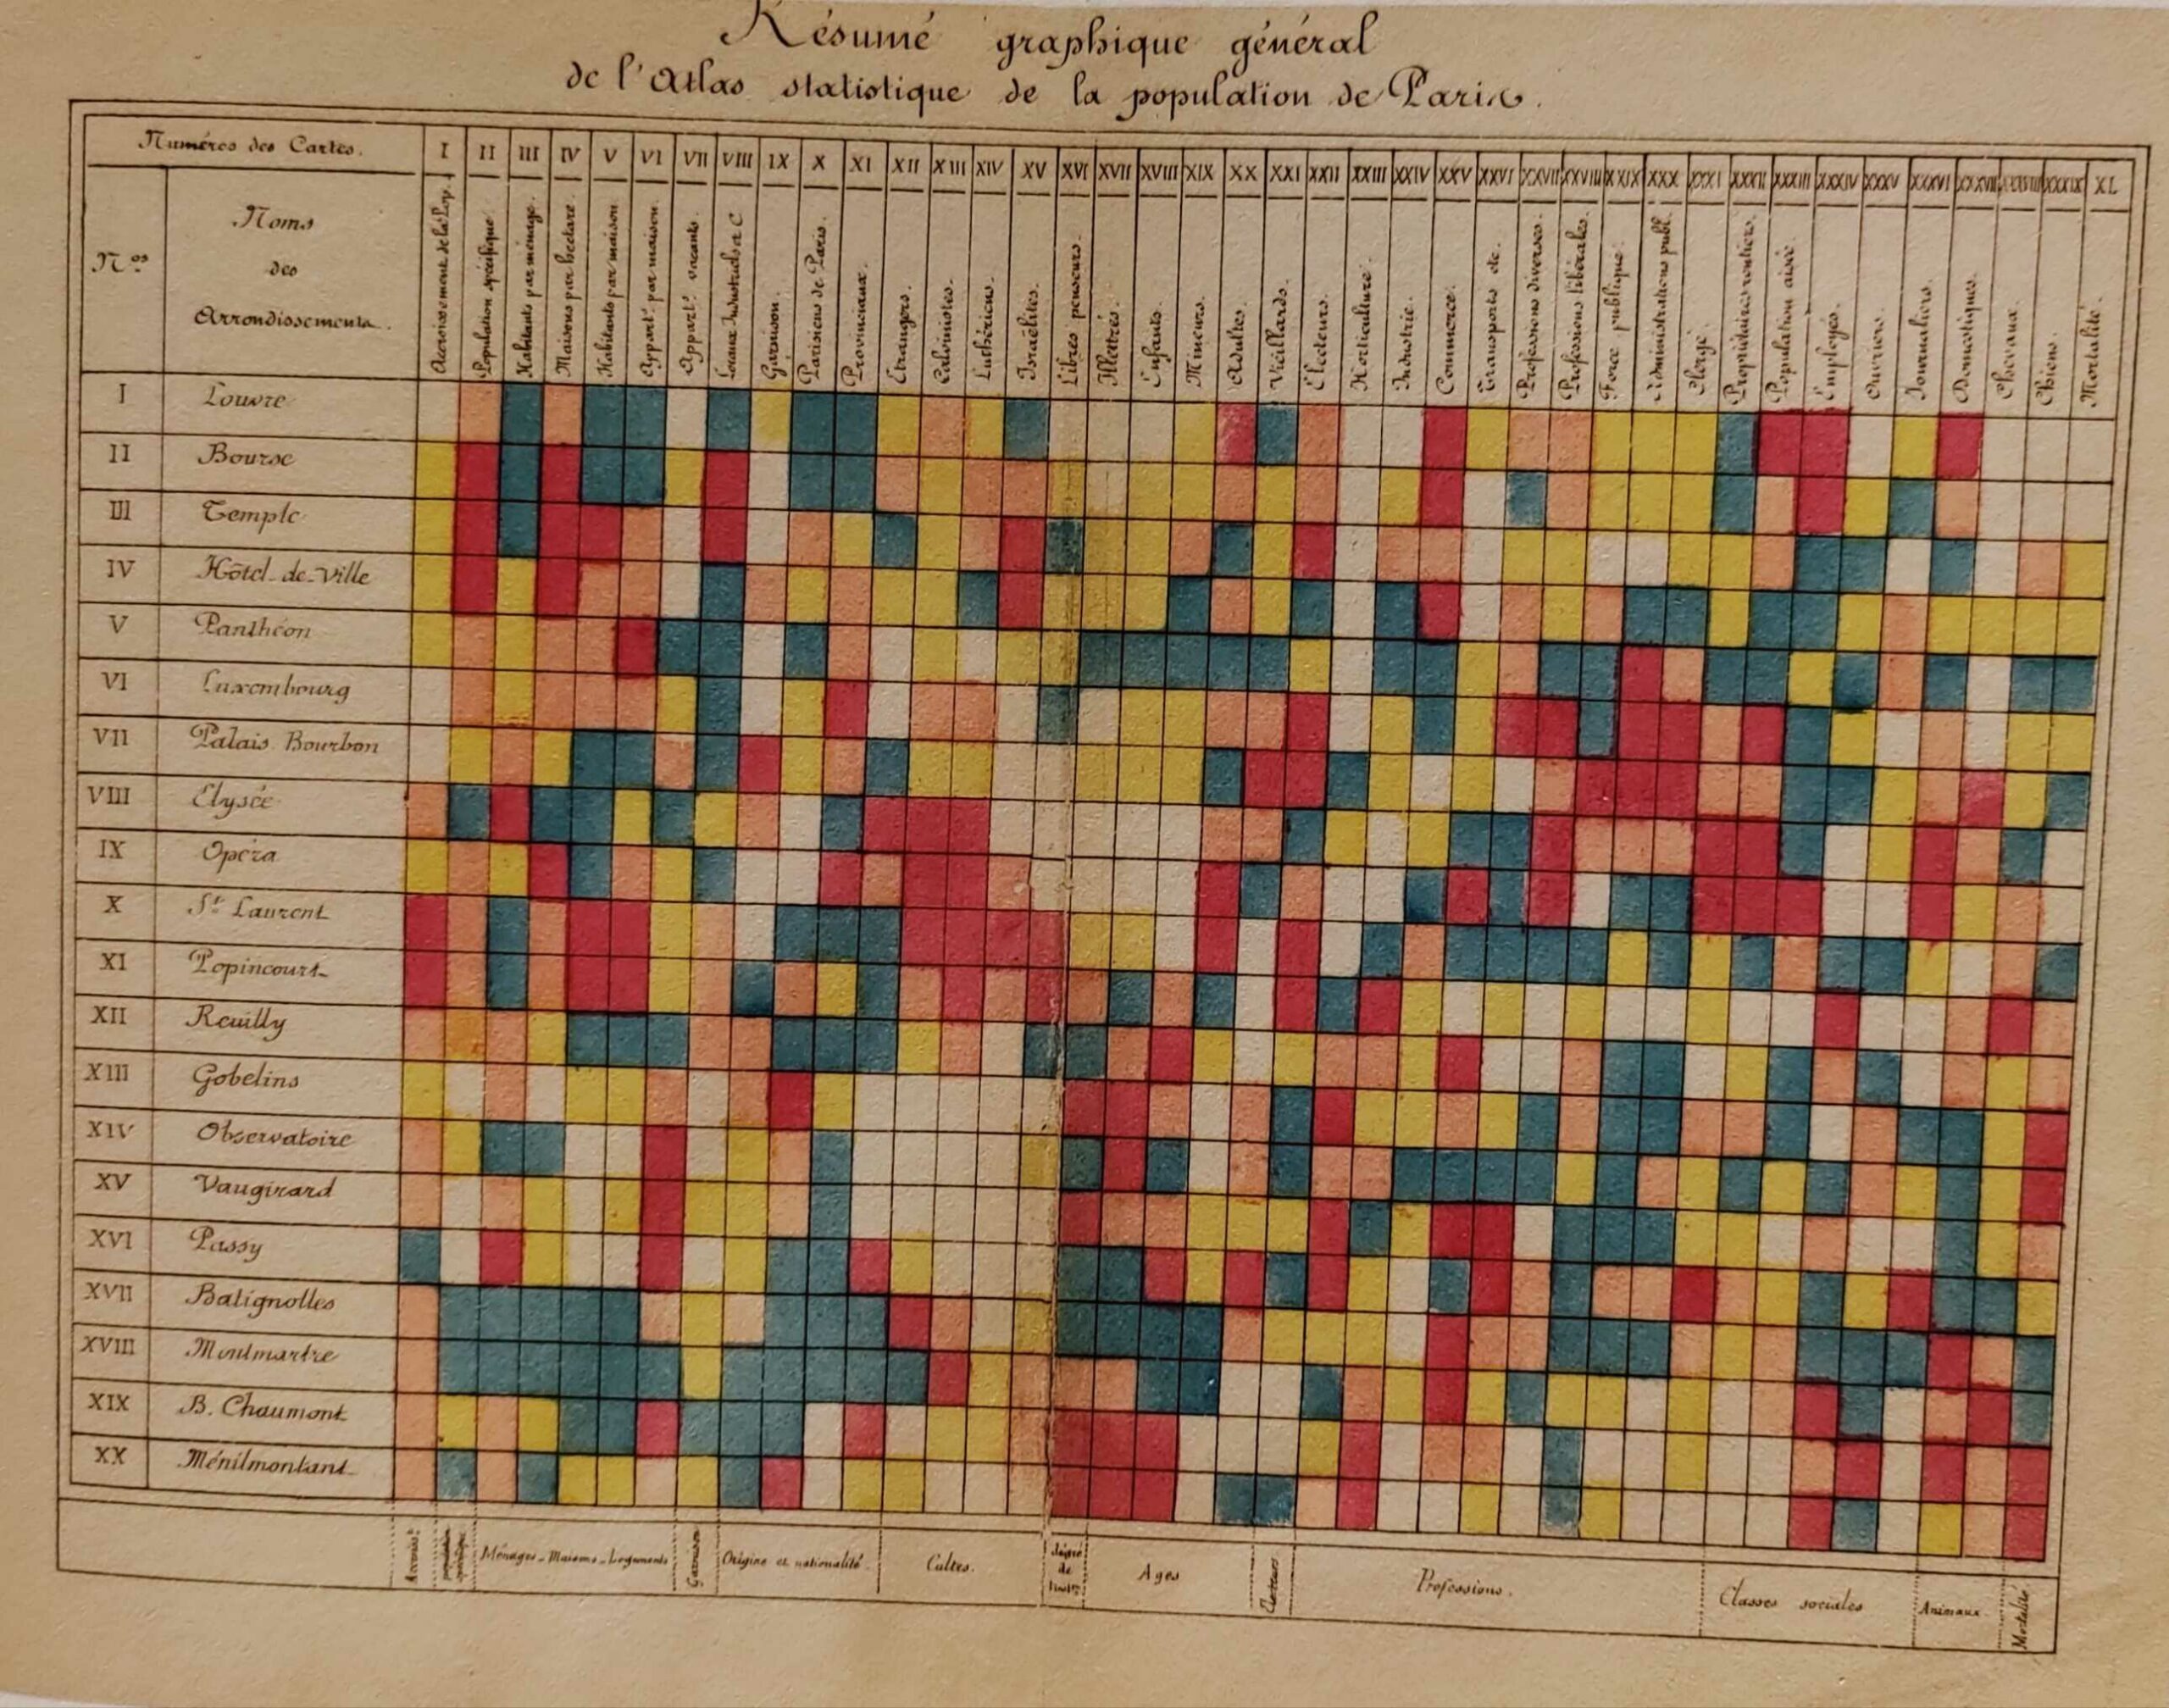 Résumé graphique général
de l'Atlas statistique de la population de Paris.
Numéros des Cartes. I II III IV V VI VII VIII IX X XI XII XIII XIV XV XVI XVII XVIII XIX XX XXI XXII XXIII XXIV XXV XXVI XXVII XXVIII XXIX XXX XXXI XXXII XXXIII XXXIV XXXV XXXVI XXXVII XXXVIII XXXIX XL
Nos
Noms
des
Arrondissements.
Accroissement de la Pop.
Population spécifique.
Habitants par ménage.
Maisons par hectare.
Habitants par maison
Appart. par maison.
Appart. vacants.
Locaux Industriels et C
Garnison.
Parisiens de Paris.
Provinciaux.
Etrangers.
Calvinistes.
Luthériens.
Israélites.
Libres penseurs.
Illettrés.
Enfants.
Mineurs.
Adultes.
Vieillards.
Electeurs.
Horticulture.
Industrie.
Commerce.
Transports etc.
Professions diverses.
Professions libérales.
Force publique.
Administrations publ.
Clergé.
Propriétaires rentiers.
Population aisée.
Employés.
Ouvriers.
Journaliers.
Domestiques.
Chevaux.
Chiens.
Mortalité.
I Louvre
II Bourse
III Temple
IV Hôtel-de-Ville
V Panthéon
VI Luxembourg
VII Palais Bourbon
VIII Elysée
IX Opéra
X St Laurent
XI Popincourt
XII Reuilly
XIII Gobelins
XIV Observatoire
XV Vaugirard
XVI Passy
XVII Batignolles
XVIII Montmartre
XIX B. Chaumont
XX Ménilmontant
population spécifique
Ménages - Maisons - Logements
Garnison
Origine et nationalité.
Cultes.
degré
de
Ages
Electeurs
Professions.
Classes sociales
Animaux
Mortalité